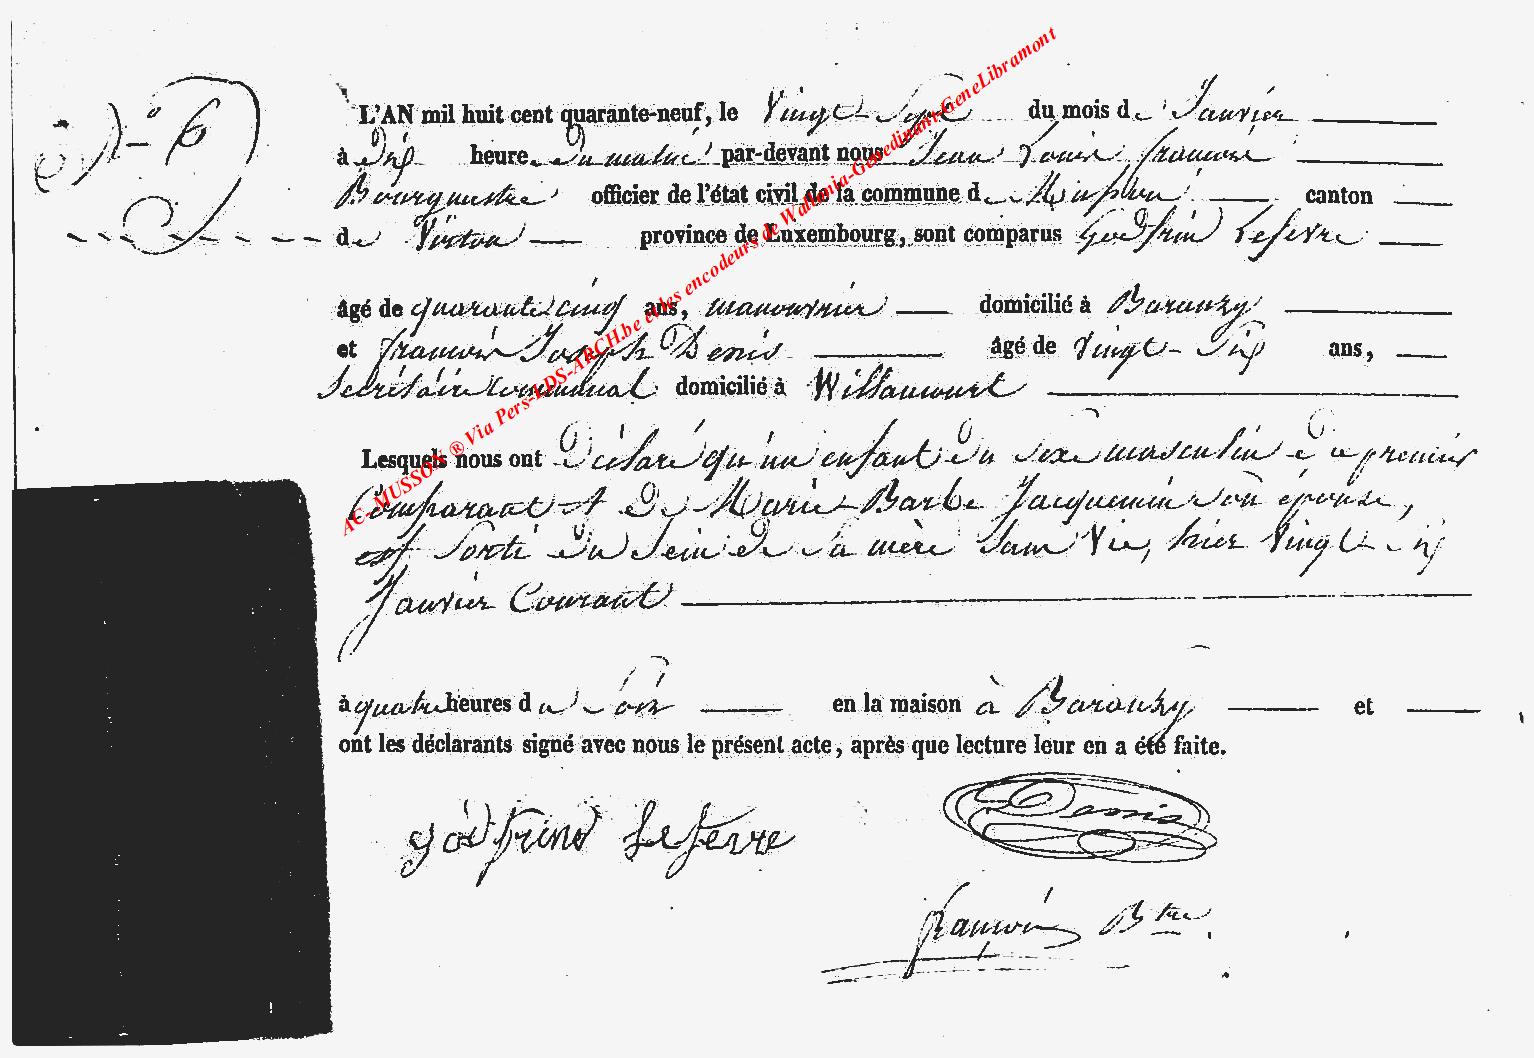 N° 6
L'AN mil huit cent quarante-neuf, le Vingt-Sept du mois de Janvier
à Dix heures du matin par-devant nous Jean Louis françois
Bourgmestre officier de l'état civil de la commune de Musson canton
de Virton province de Luxembourg, sont comparus Godfrin Lefevre
âgé de quarante cinq ans, manouvrier domicilié à Baranzy
et françois Joseph Denis âgé de Vingt-Six ans,
Secrétaire Communal domicilié à Willancourt
Lesquels nous ont Déclaré qu'un enfant du sexe masculin de ce premier
Comparant et de Marie-Barbe Jacquemin son épouse,
est Sorti du Sein de Sa mère Sans Vie, hier Vingt-Six
Janvier Courant
à quatre heures du Soir en la maison à Baranzy et
ont les déclarants signé avec nous le présent acte, après que lecture leur en a été faite.
godfrind lefevre Denis
françois Btre
AC-MUSSON ® Via Pers-EDS-ARCH.be et les encodeurs de Wallonia-Genedinant-GeneLibramont